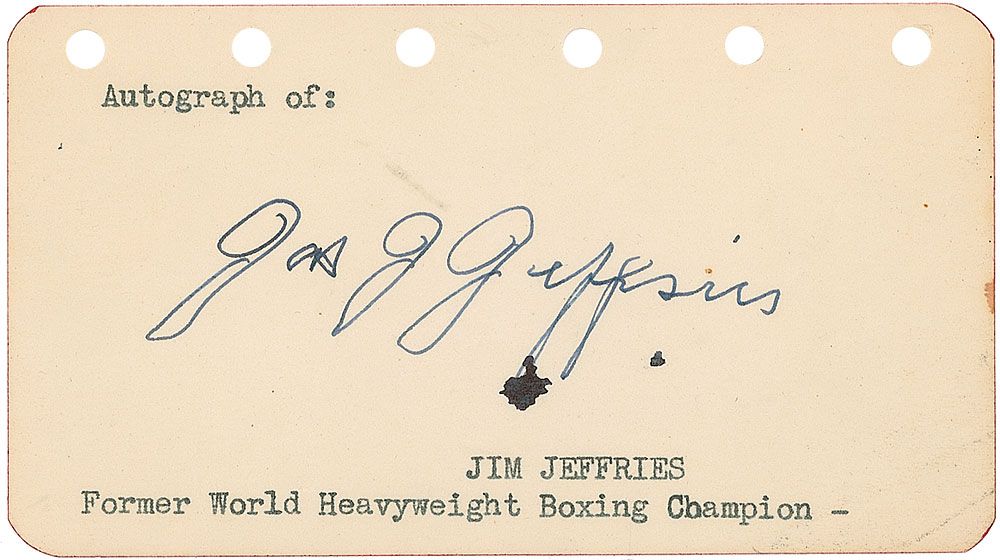 Autograph of:
Jas J Jeffries
JIM JEFFRIES
Former World Heavyweight Boxing Champion -